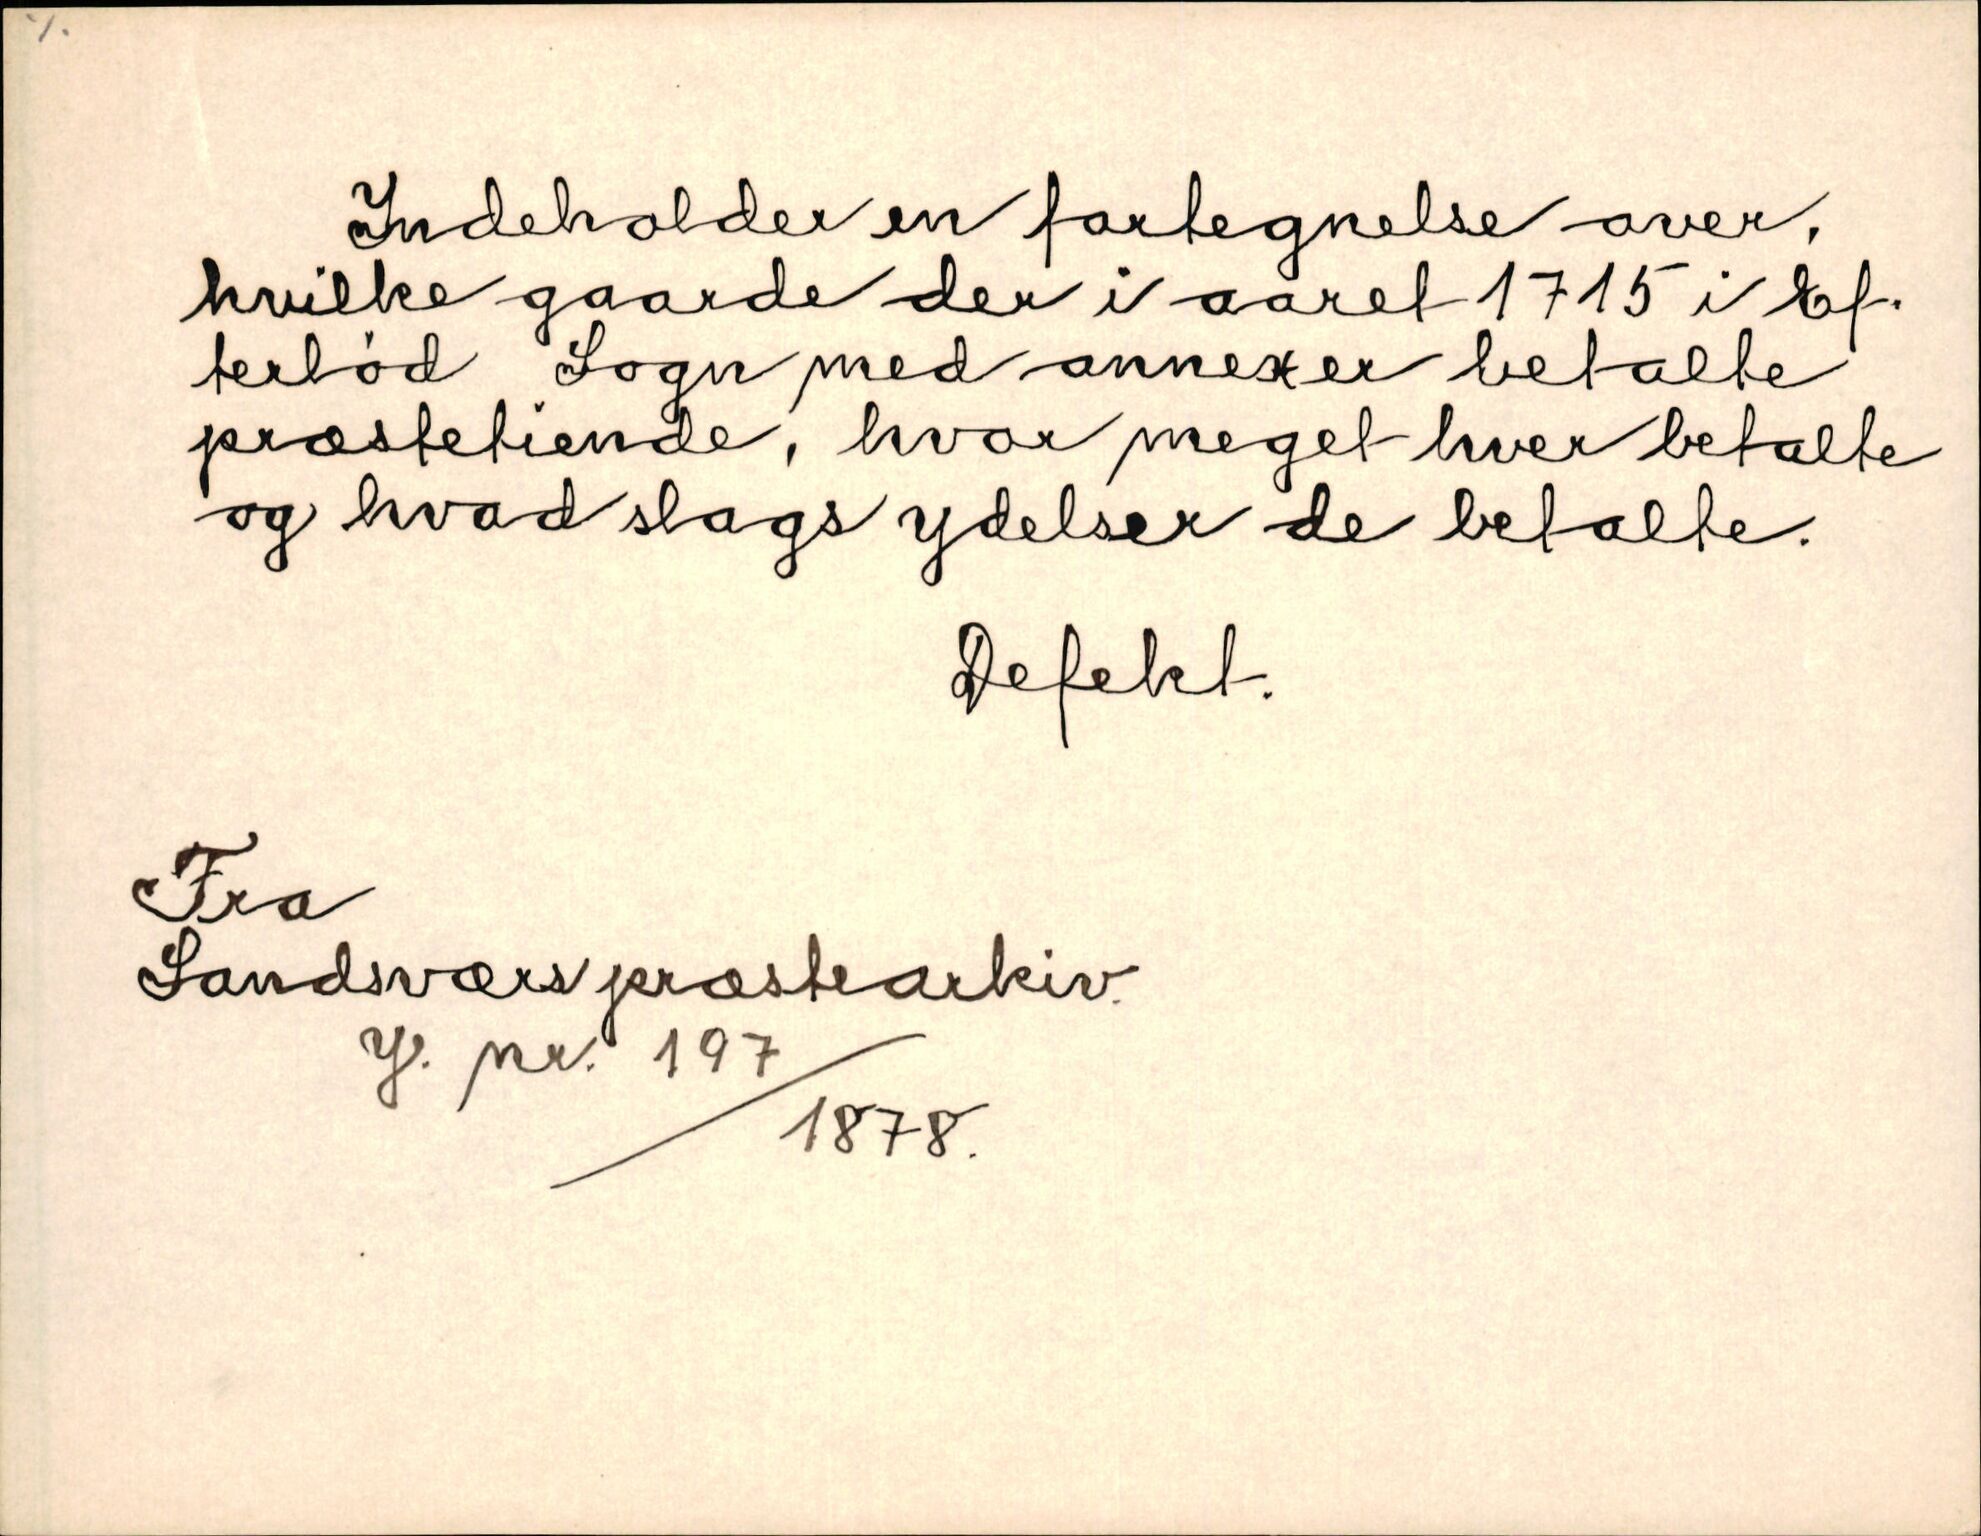 Indeholder en fortegnelse over,
hvilke gaarde der i aaret 1715 i Ef-
terlöd Sogn med annexer betalte
præstetiende, hvor meget hver betalte
og hvad slags ydelser de betalte.
Defekt.
Fra
Sandsværs præstearkiv.
J. nr. 197
1878.